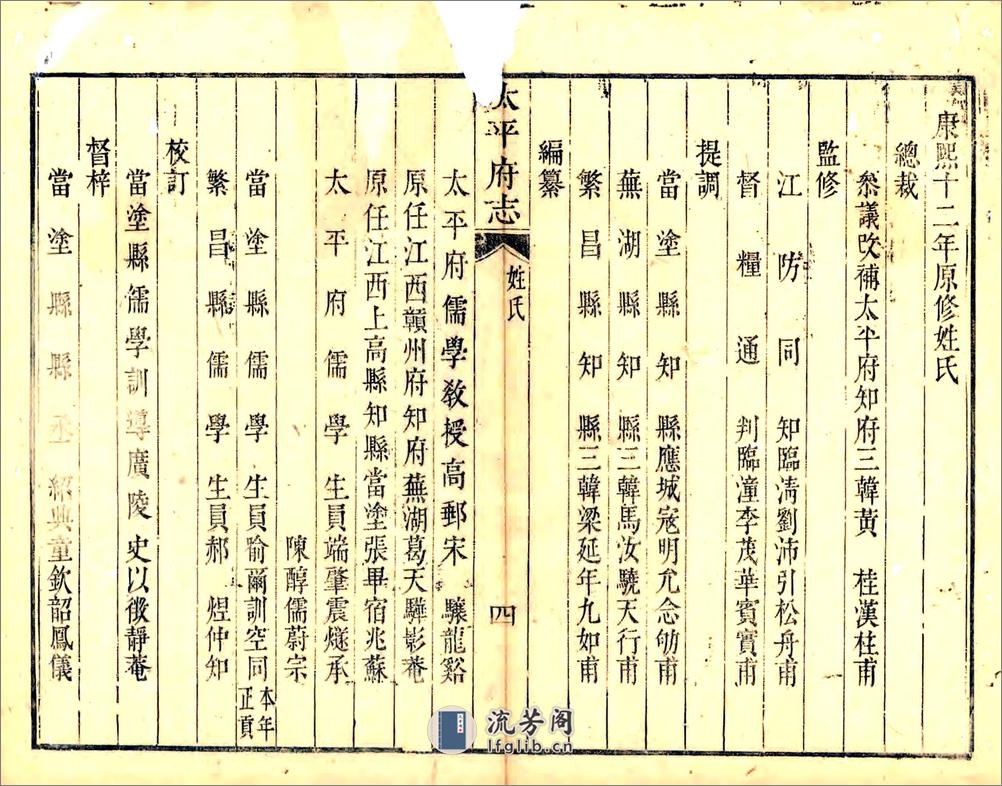 康熙十二年原修姓氏
總裁
叅議改補太平府知府三韓黃 桂漢柱甫
監修
江防同知臨清劉沛引松舟甫
督糧通判臨潼李茂華賓實甫
提調
當塗縣知縣應城寇明允念劬甫
蕪湖縣知縣三韓馬汝驍天行甫
繁昌縣知縣三韓梁延年九如甫
編纂
太平府志
姓氏
四
太平府儒學教授高郵宋 驤龍谿
原任江西贛州府知府蕪湖葛天驊影菴
原任江西上高縣知縣當塗張畢宿兆蘇
太平府儒學生員端肇震燧承
陳醇儒蔚宗
當塗縣儒學生員喻爾訓空同本年正貢
繁昌縣儒學生員郝 煜仲知
校訂
當塗縣儒學訓導廣陵史以徵靜菴
督梓
當塗縣縣丞紹興童欽韶鳳儀
流芳阁
lfglib.cn